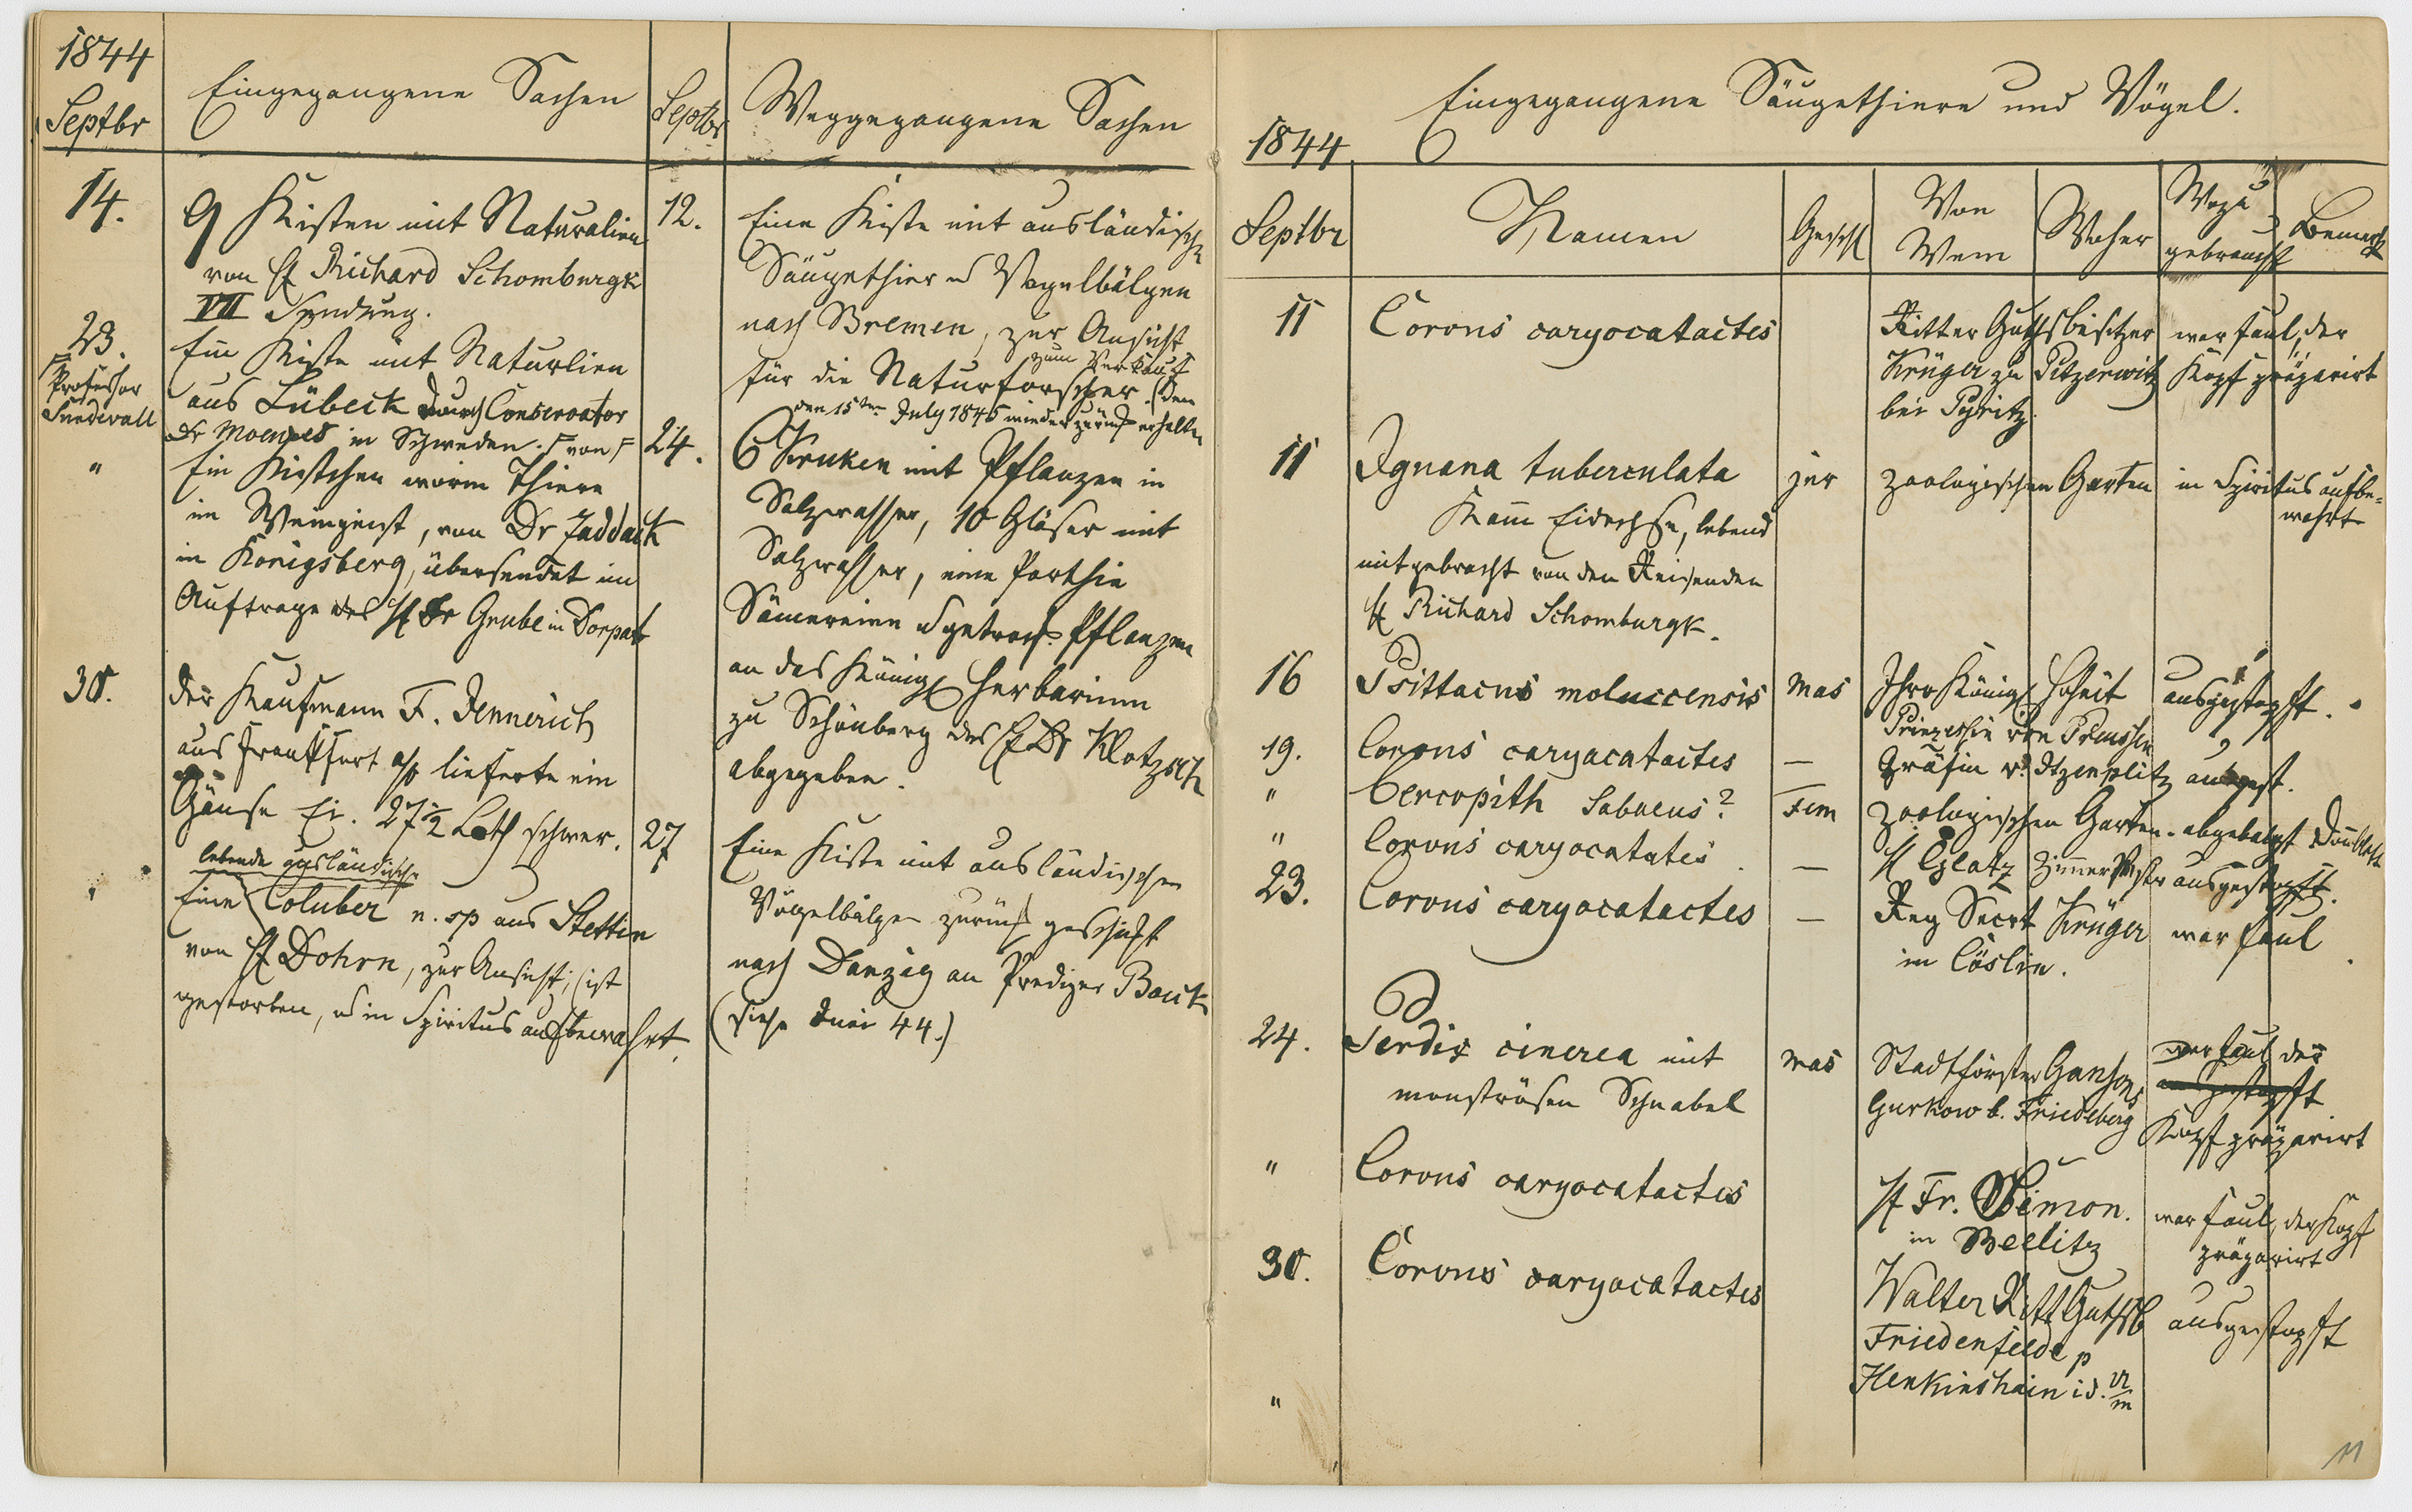 1844
Septbr
Eingegangene Sachen
Septbr
Weggegangene Sachen
14.
9 Kisten mit Naturalien
von H Richard Schomburgk
VII Sendung.
23.
Ein Kiste mit Naturlien
Professor
Sundevall
aus Lübeck durch Conservator
Dr in Schweden. von
"
Ein Kistchen worin Thiere
in Weingeist, von Dr Zaddach
in Königsberg, übersendet im
Auftrage des H Dr Grube in Dorpat
30.
der Kaufmann F. Jennerich
aus Frankfurt a/o lieferte ein
Gänse Ei. 27 1/2 Loth schwer.
lebende ausländische
Eine Coluber n. sp aus Stettin
von H Dohrn, zur Ansicht; (ist
gestorben, u in Spiritus aufbewahrt.
12.
Eine Kiste mit ausländische
Säugethier u Vogelbälgen
nach Bremen, zur Ansicht
zum Verkauf
für die Naturforscher. (den
den 15ten July 1845 wieder zurück erhalten
24.
6 Kruken mit Pflanzen in
Salzwasser, 10 Gläser mit
Salzwasser, eine Parthie
Sämereien u getrock Pflanzen
an das Königl Herbarium
zu Schönberg des H Dr Klotzsch
abgegeben.
27
Eine Kiste mit ausländischen
Vögelbälgen zurück geschickt
nach Danzig an Prediger Bock
(siehe Juni 44.)
Eingegangene Säugethiere und Vögel.
1844
Septbr
Namen
Geschl
Von
Wem
Woher
Wozu
gebraucht
Bemerk
11
Corvus caryocatactes
Ritter Guthsbesitzer
Krüger zu Pitzerwitz
bei Pyritz.
war faul, der
Kopf präparirt
11
Iguana tuberculata
jur
zoologischen Garten
in Spiritus aufbe=
wahrt
Kam̅ Eidechse, lebend
mitgebracht von den Reisenden
H Richard Schomburgk.
16
Psittacus moluccensis
mas
Ihro Königl Hoheit
Prinzessin von Preussen
ausgestopft.
19.
Corvus caryacatactes
—
Gräfin v. Itzenplitz ausgest.
"
Cercopith Sabaeus?
Fem
zoologischen Garten. abgebalgt Doublette
"
Corvus caryocatates
—
H Glatz Zimmer Mstr ausgestopft.
23.
Corvus caryocatactes
—
Reg Secrt Krüger
in Cöslin.
war faul
24.
Perdix cinerea mit
monströsen Schnabel
mas
Stadtförster
Gurkow b. Friedeberg
war faul der
ausgestopft
Kopf präparirt
"
Corvus caryocatactes
H Fr. Simon.
in Beelitz
war faul, der Kopf
präparirt
30.
Corvus caryocatactes
Walter Ritt Guthsb
Friedenfelde p
Henkinshain i d.
ausgestopft
"
11